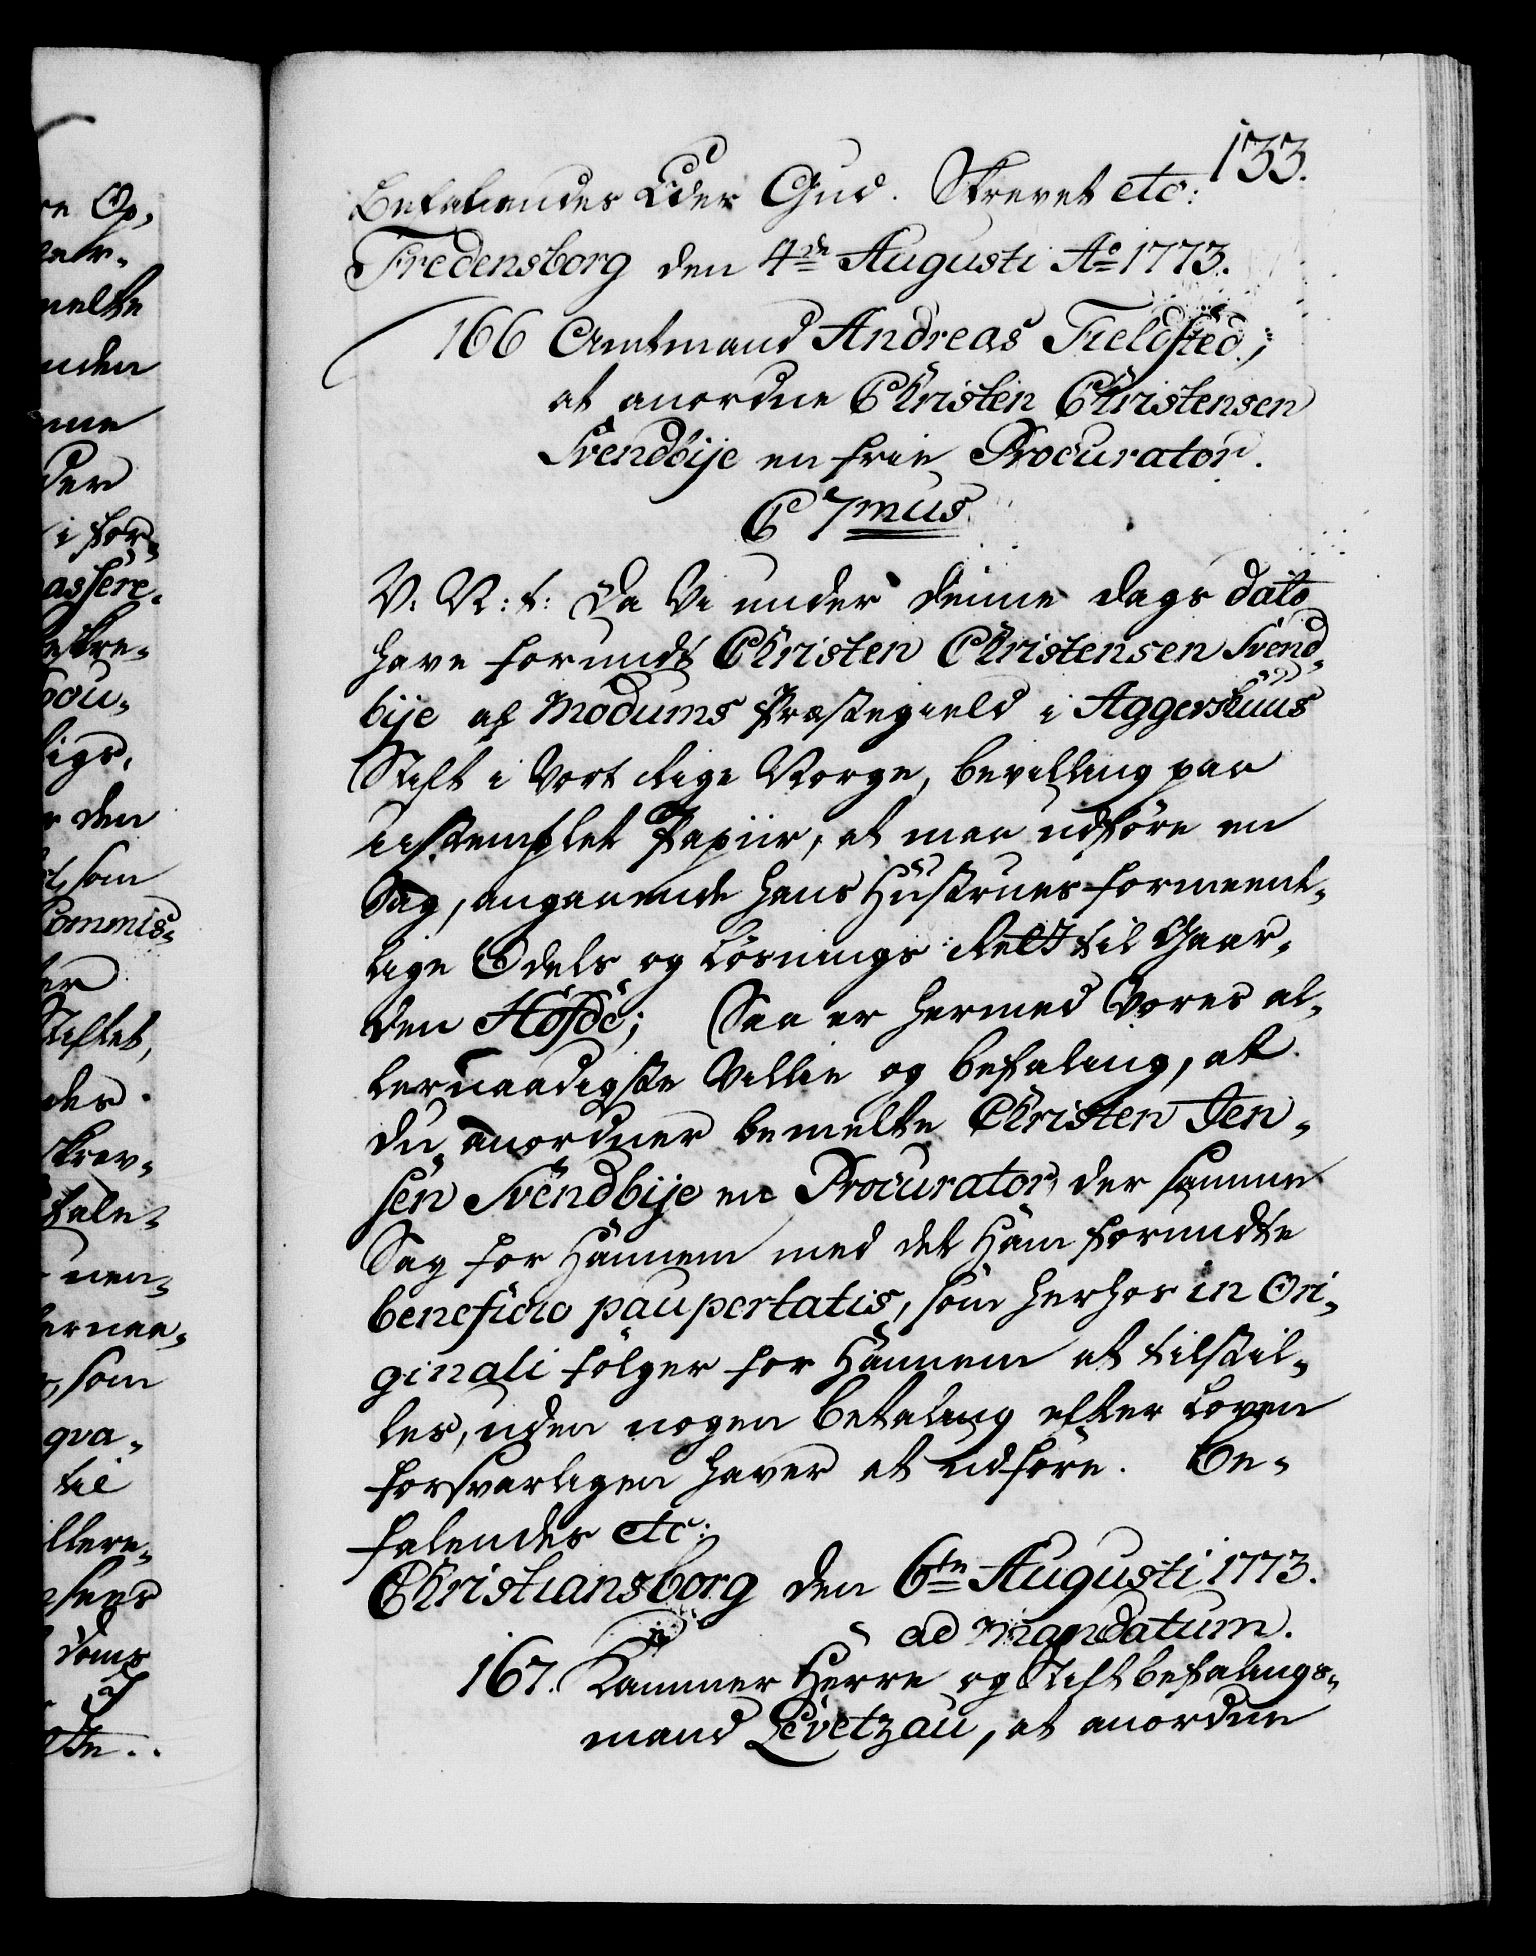 133.
Befalendes Eder Gud. Skrevet etc:
Fredensborg den 4de Augusti Ao 1773.
166 Amtmand Andreas Fieldsted;
at anordne Christen Christensen
Svendbije en frie Procurator.
C 7mus
V. N: t: Da Vi under denne dags dato
have forundt Christen Christensen Svend-
bije af Modums Præstegield i Aggershuus
Stift i Vort Rige Norge, bevilling paa
ustemplet Papiir, at maa udføre en
Sag, angaaende hans Hustrues formeent-
lige Odels og Løsnings Rett til Gaar-
den Hofde; Saa er hermed Vores al-
lernaadigste Villie og befaling, at
du anordner bemelte Christen Jen-
sen Svendbije en Procurator, der samme
Sag for Hannem med det Ham forundte
beneficio paupertatis, som herhos in Ori-
ginali følger for Hannem at tilstil-
les, uden nogen betaling efter Loven
forsvarligen haver at udføre. Be-
falendes etc:
Christiansborg den 6te Augusti 1773.
ad mandatum.
167. Kammer Herre og Stiftbefalings-
mand Levetzau, at anordne